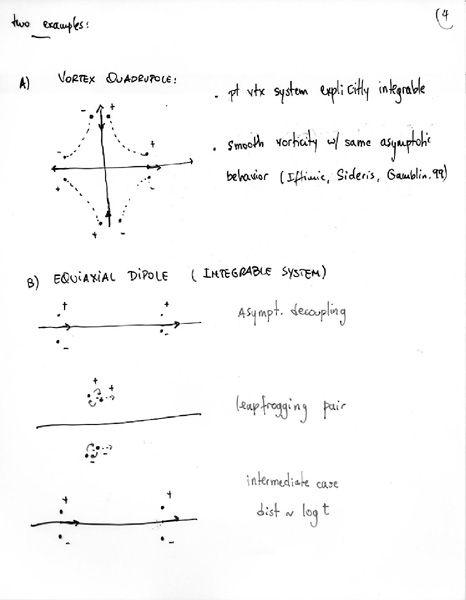 (4
two examples:
A) VORTEX QUADRUPOLE:
- +
- +
+ -
+ -
· pt vtx system explicitly integrable
· smooth vorticity w/ same asymptotic
behavior (Iftimie, Sideris, Gamblin.99)
B) EQUIAXIAL DIPOLE (INTEGRABLE SYSTEM)
+ +
- -
Asympt. decoupling
+ +
- -
leapfrogging pair
intermediate case
dist ~ log t
+ +
- -